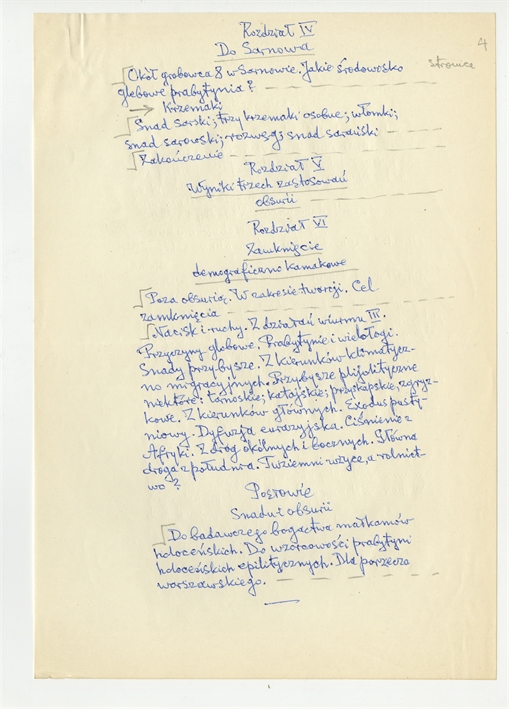 Rozdział IV
Do Sarnowa
4
stronica
Okół grobowca 8 w Sarnowie. Jakie środowisko
glebowe prabytynia?
→ Krzemaki
Snad sarski; trzy krzemaki osobne; włomki;
snad sarowski; rozwsgi snad sardiński
Zakończenie
Rozdział V
Wyniki trzech zastosowań
obsurii
Rozdział VI
Zamknięcie
demograficzno kamakowe
Poza obsurią. W zakresie tworcji. Cel
zamknięcia
Nacisk i ruchy. Z działań wiurmu III.
Przyczyny glebowe. Prabytynie i wielołogi.
Snady przybysze. Z kierunków klimatycz-
no migracyjnych. Przybysze plijolityczne
niektóre: łanoskie; katajskie; przykapskie, zgryz-
kowe. Z kierunków głównych. Exodus pusty-
niowy. Dyfuzja eurazyjska. Ciśnienie z
Afryki. Z dróg okólnych i bocznych. Główna
droga z południa. Tuziemni wżyce, a rolnict-
wo?
Posłowie
Snadu i obsurii
Do badawczego bogactwa małkamów
holoceńskich. Do wzorcowości prabytyni
holoceńskich epilitycznych. Dla porzecza
warszawskiego.